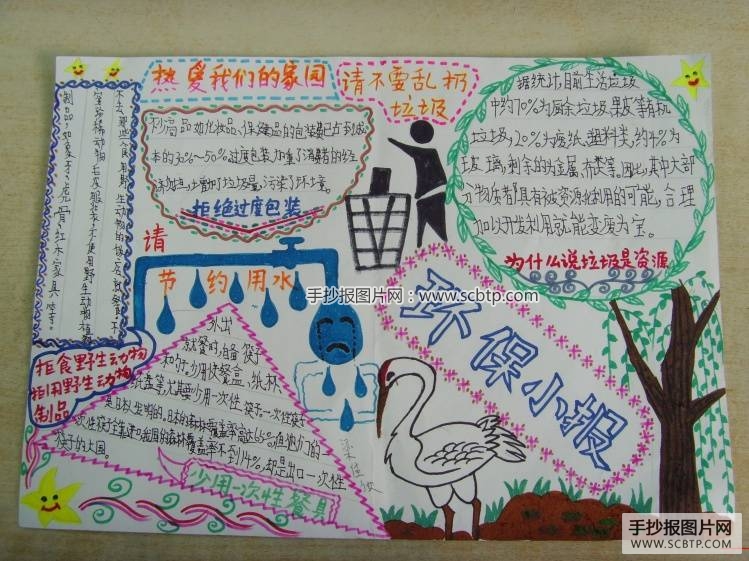 热爱我们的家园
请不要乱扔
垃圾
不去那些食用野生动物的
室珍稀动物毛皮服装,不使用野生动植物
制品,如象牙、虎骨、红木家具等。
拒食野生动物
拒用野生动物
制品
化妆品、保健品的包装费已占到成
本的30%~50%过度包装,加重了消费者的经
又增加了垃圾量,污染了环境。
拒绝过度包装
据统计,目前生活垃圾
中约70%为厨余垃圾果皮等有机
垃圾,20%为废纸、塑料类,约4%为
玻璃,剩余的为金属、布类等。因此,其中大部
分物质都具有被资源化利用的可能,合理
加以开发利用就能变废为宝。
为什么说垃圾是资源
请
节约用水
手抄报图片网:www.scbtp.com
环保小报
外出
就餐时,自备筷子
和勺子,少用快餐盒、纸杯
纸盘等,尤其要少用一次性筷子,一次性筷子
是日本人发明的,日本的森林覆盖率高达65%,但他们的一
次性筷子全靠进口,我国的森林覆盖率不到14%,却是出口一次性
筷子的大国。
少用一次性餐具
手抄报图片网
WWW.SCBTP.COM